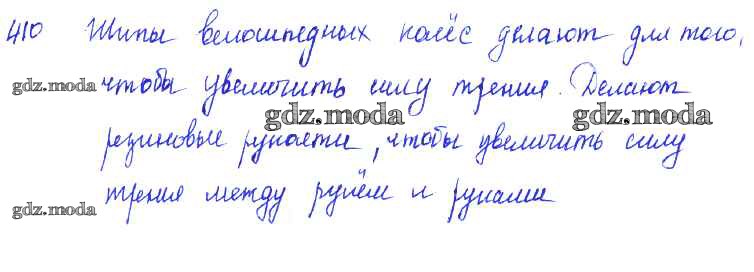 410 Шипы велошпедных колёс делают для того,
чтобы увеличить силу трения. Делают
gdz.moda
gdz.moda gdz.moda
резиновые рукояти, чтобы увеличить силу
трения между рулём и руками
gdz.moda